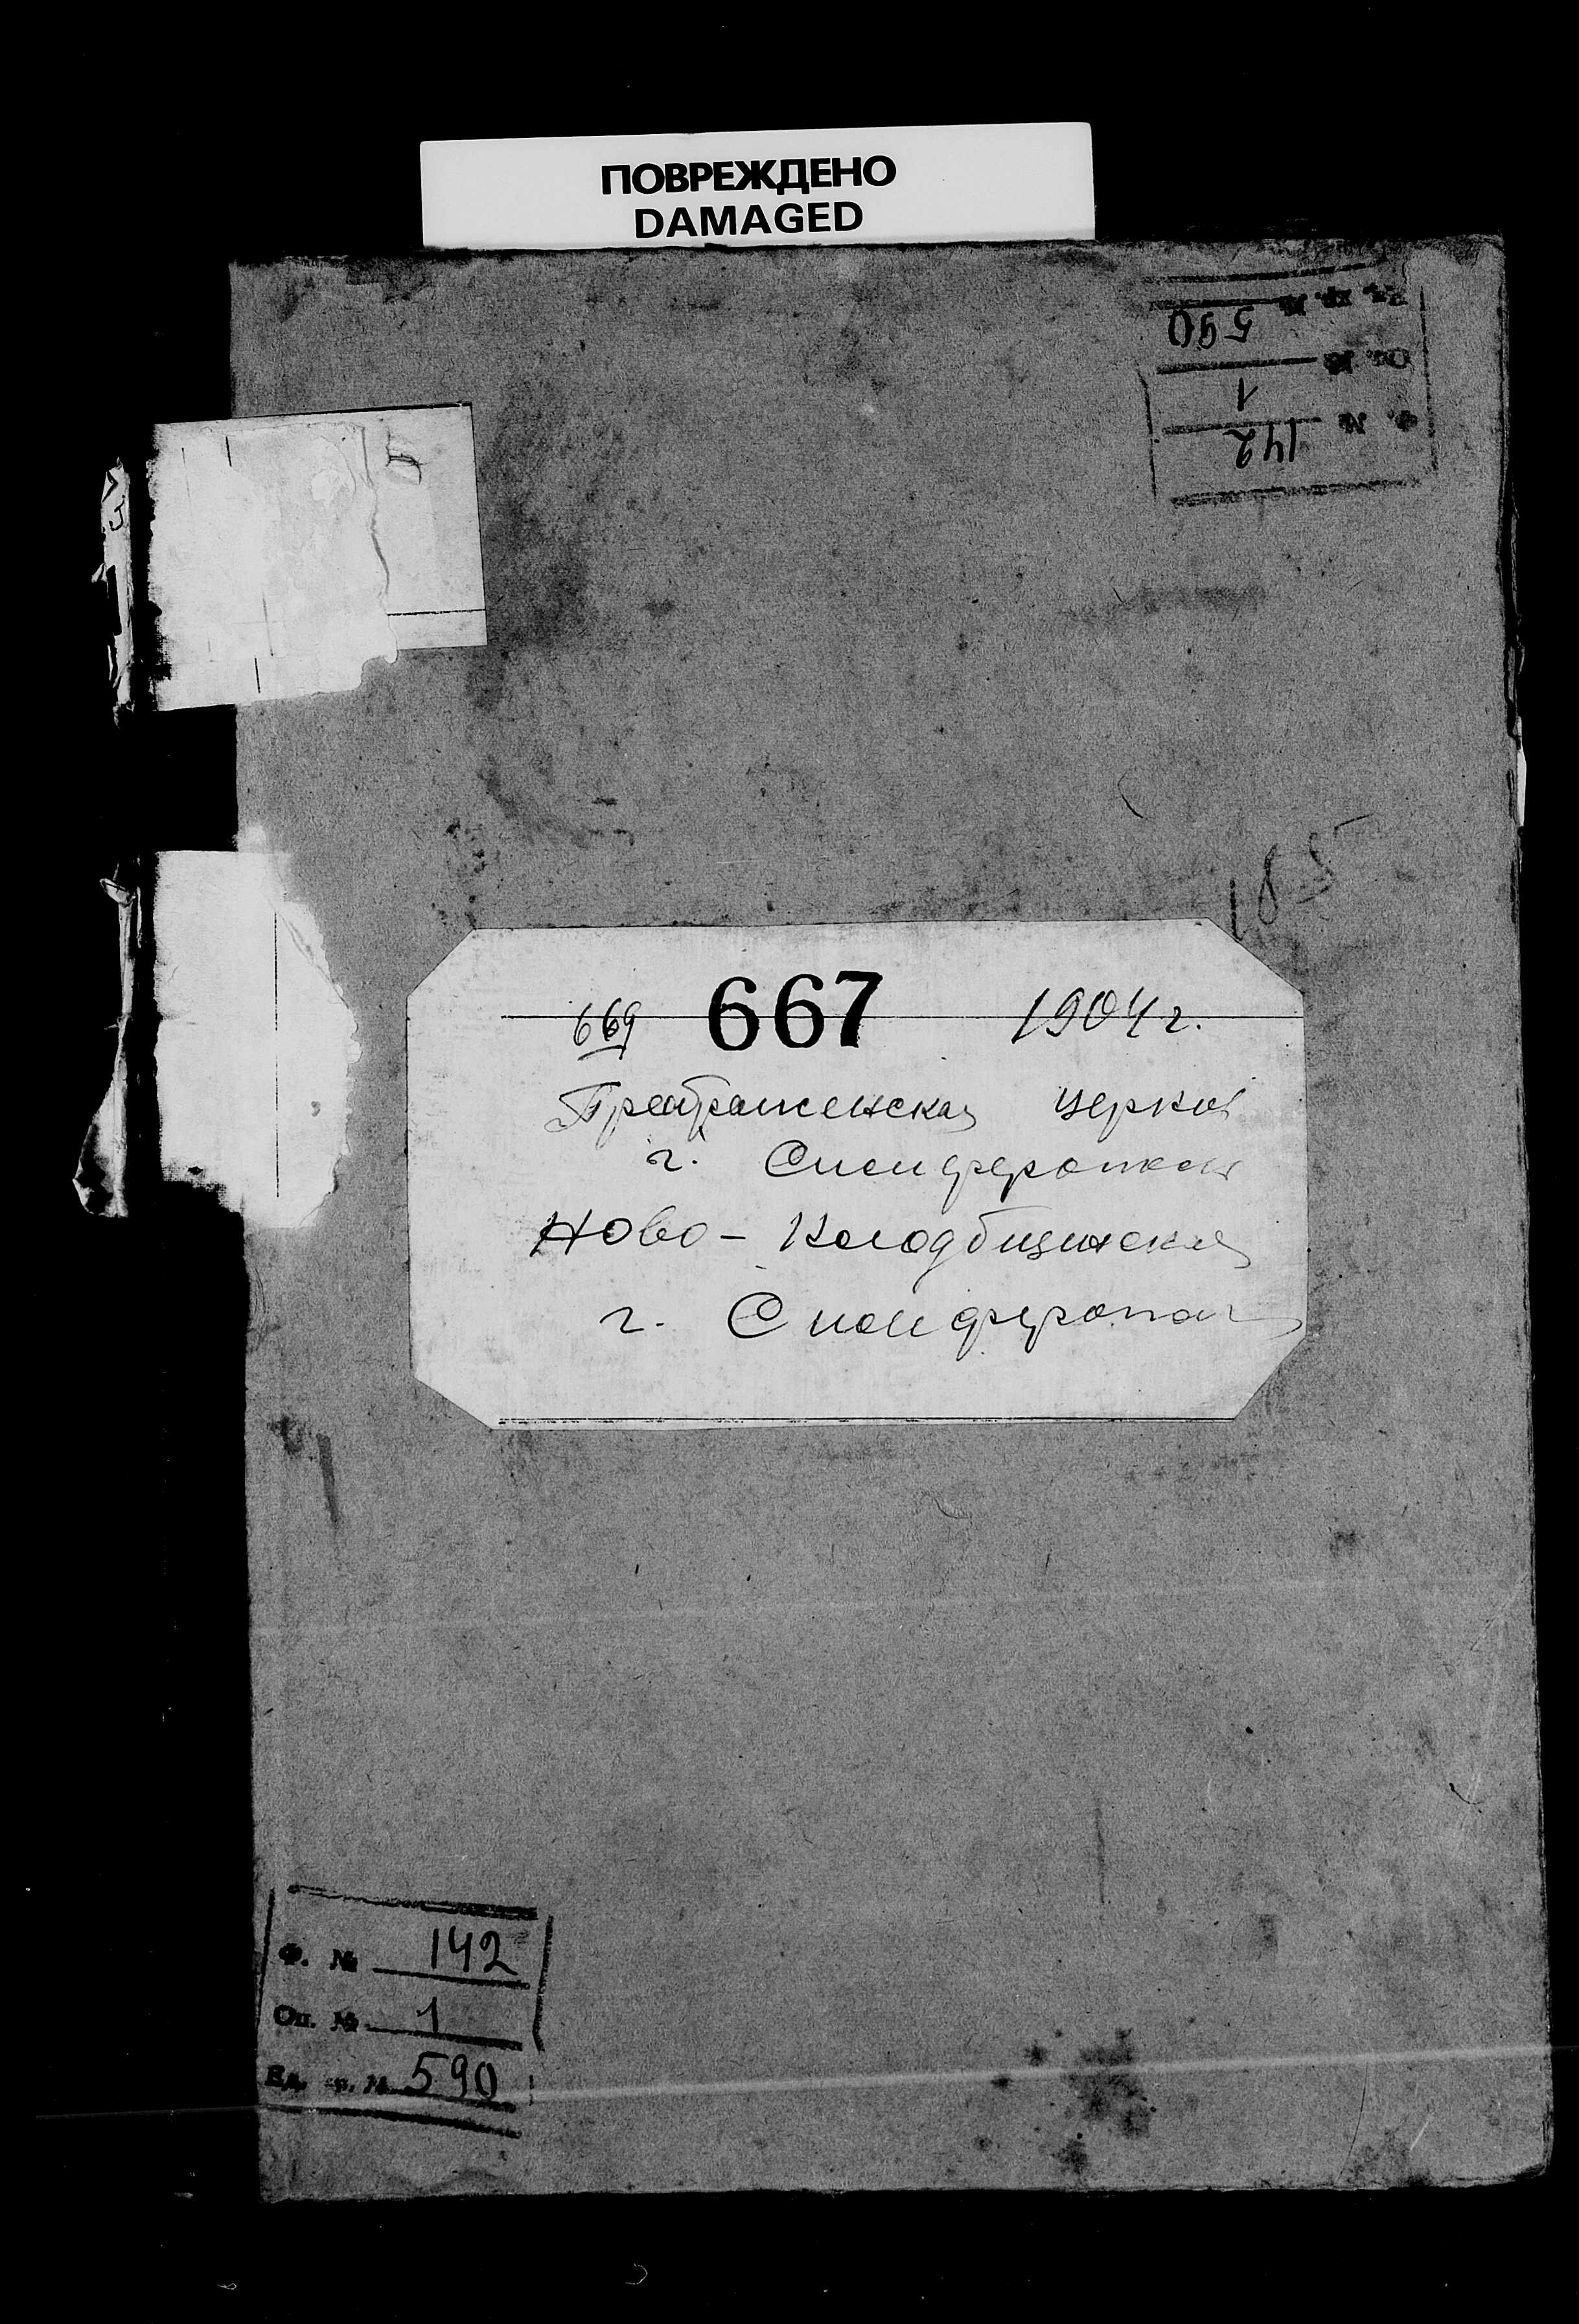 ПОВРЕЖДЕНО
DAMAGED
Ед. хр. № 590
Оп. № 1
Ф. № 142
185
669 667 1904 г.
Преображенская церковь
г. Симферополя
Ново-Кладбищенская
г. Симферополь
Ф. № 142
Оп. № 1
Ед. хр. № 590